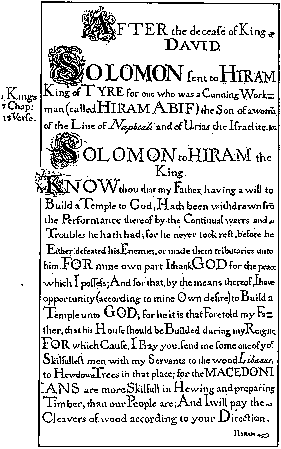 AFTER the decease of King
DAVID.
SOLOMON sent to HIRAM
1 Kings
7 Chap:
13 Verse.
King of TYRE for one who was a Cunning Work=
man (called HIRAM ABIF) the Son of a woman
of the Line of Naphtali and of Urias the Israelite.
SOLOMON to HIRAM the
King.
KNOW thou that my Father, having a will to
Build a Temple to God, Hath been withdrawn from
the Performance thereof by the Continual warrs and
Troubles he hath had; for he never took rest, before he
Either defeated his Enemies, or made them tributaries unto
him. FOR mine own part I thank GOD for the peace
which I possess; And for that, by the means thereof, I have
opportunity (according to mine Own desire) to Build a
Temple unto GOD; for he it is that Foretold my Fa=
ther, that his House should be Builded during my Reign;
FOR which Cause, I Pray you, send me some one of yor
Skilfullest men with my Servants to the wood Libanus,
to Hew down Trees in that place; for the MACEDONI
ANS are more Skilfull in Hewing and preparing
Timber, than our People are; And I will pay the
Cleavers of wood according to your Direction.
HIRAM